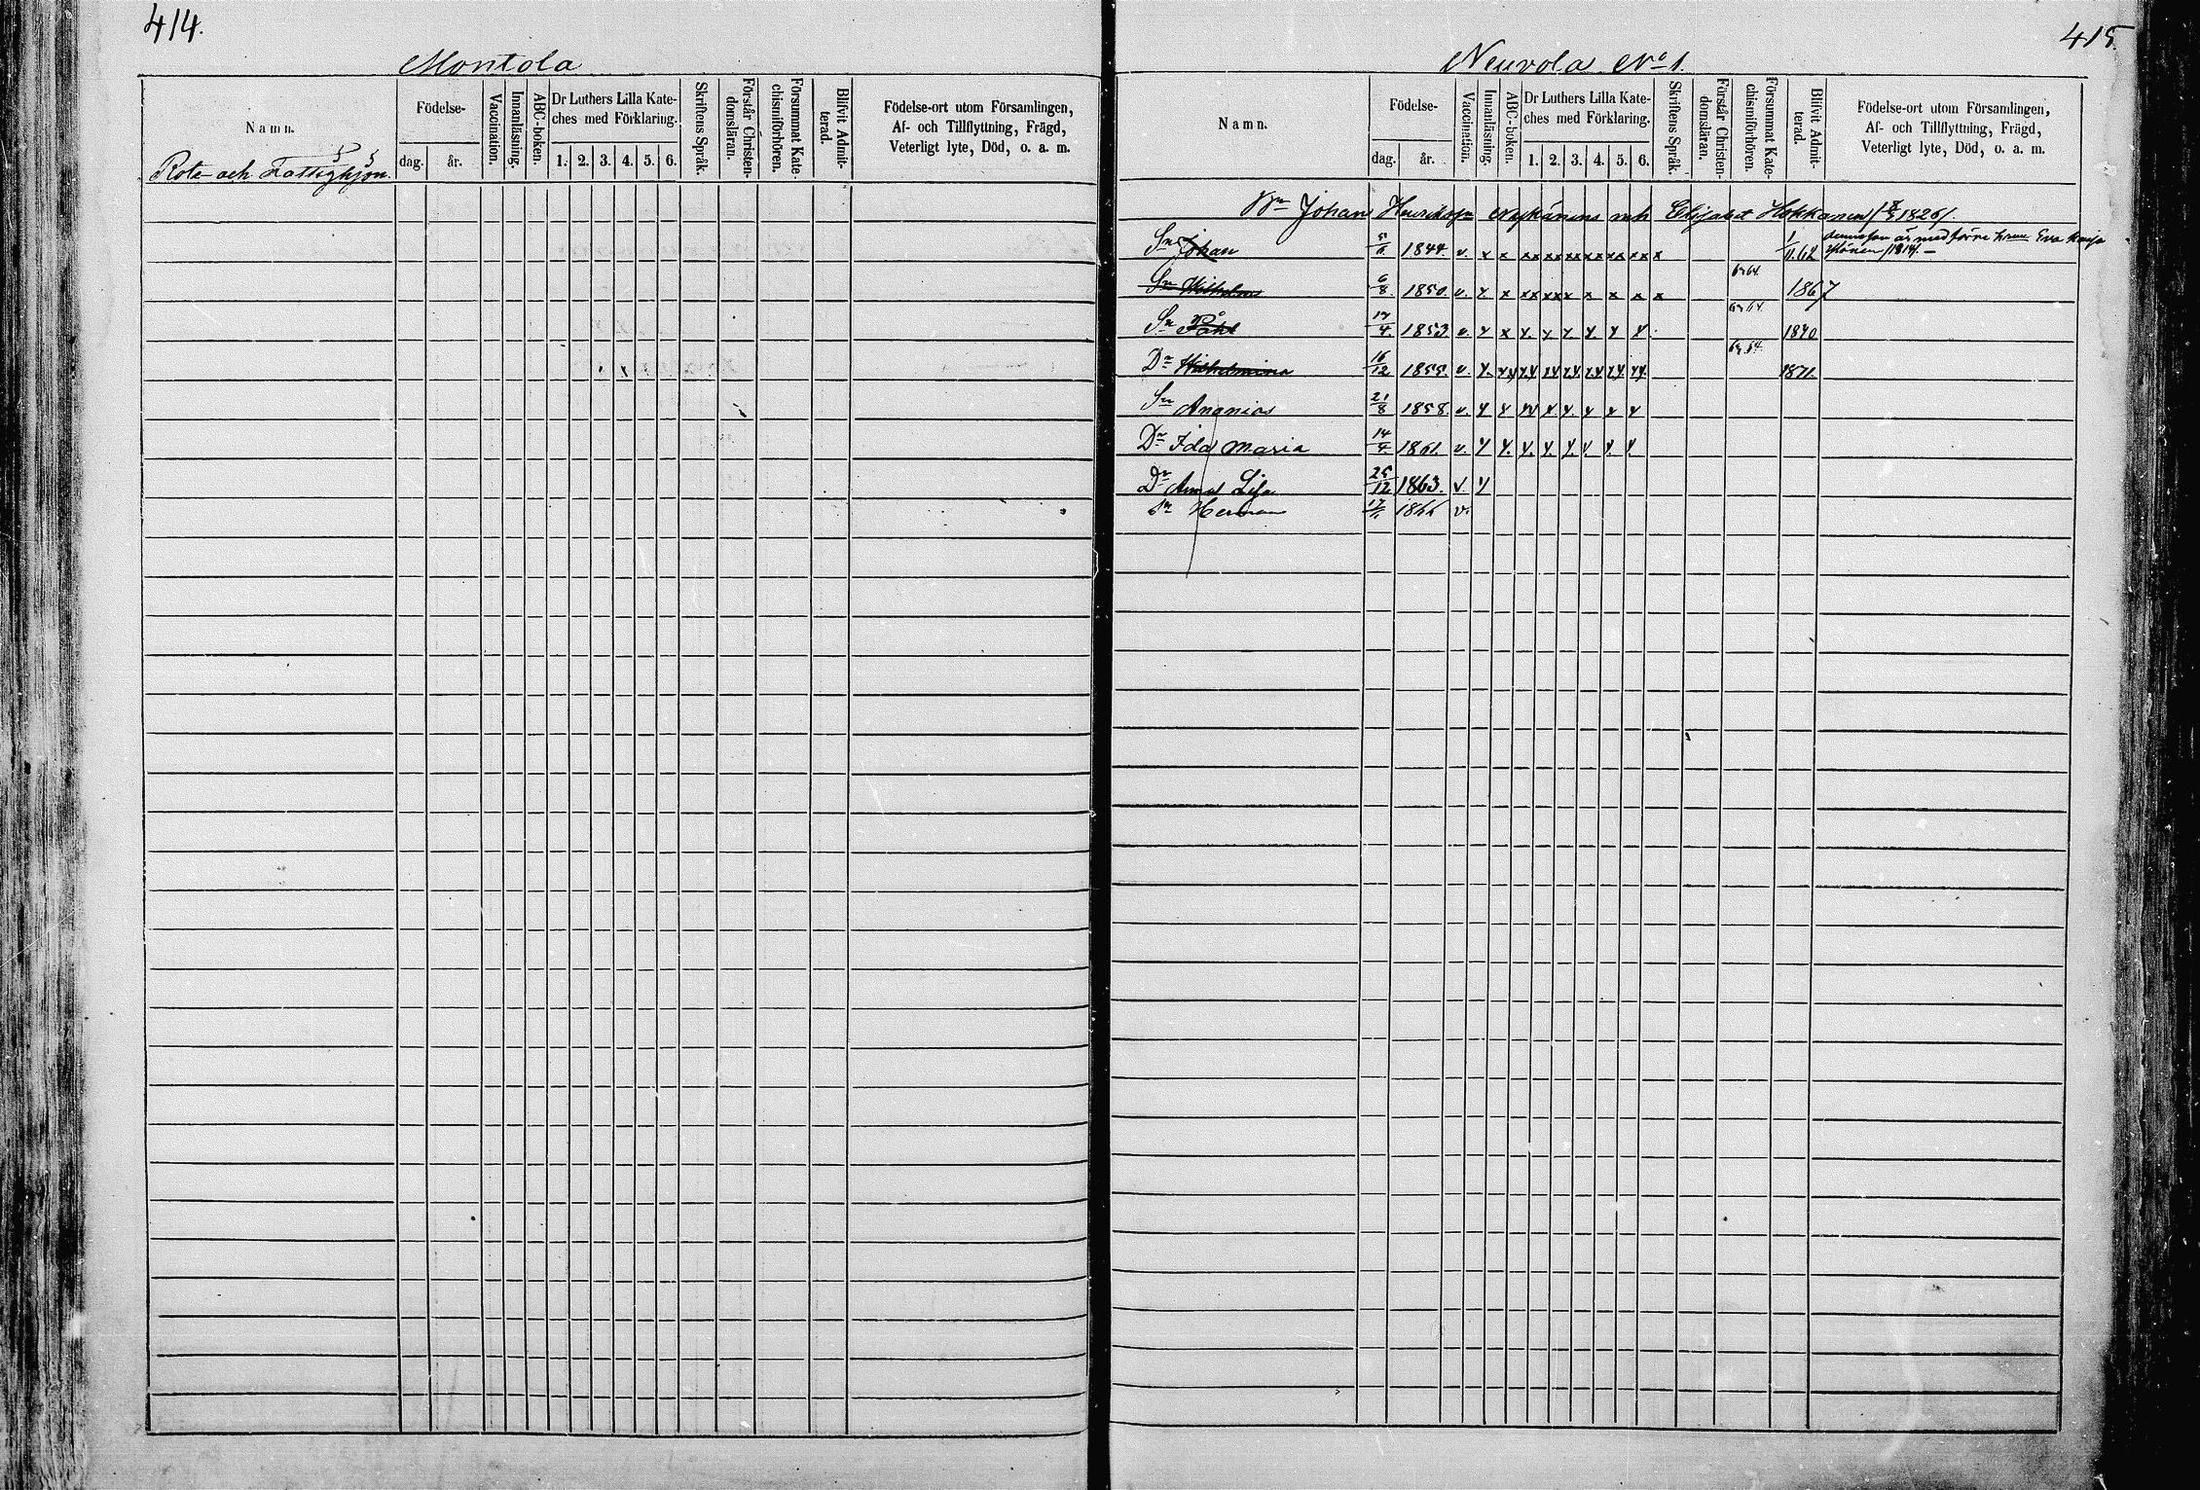 414.
Montola
Namn.
Födelse-
dag.
år.
Vaccination.
Innanläsning.
ABC-boken.
Dr Luthers Lilla Kate-
ches med Förklaring.
1. 2. 3. 4. 5. 6.
Skriftens Språk.
Förstår Christen-
domsläran.
Försummat Kate-
chismiförhören.
Blifvit Admit-
terad.
Födelse-ort utom Församlingen,
Af- och Tillflyttning, Frägd,
Veterligt lyte, Död, o. a. m.
Rote- och Fattighjon.
415.
Neuvola No 1.
Namn.
Födelse-
dag.
år.
Vaccination.
Innanläsning.
ABC-boken.
Dr Luthers Lilla Kate-
ches med Förklaring.
1. 2. 3. 4. 5. 6.
Skriftens Språk.
Förstår Christen-
domsläran.
Försummat Kate-
chismiförhören.
Blifvit Admit-
terad.
Födelse-ort utom Församlingen,
Af- och Tillflyttning, Frägd,
Veterligt lyte, Död, o. a. m.
Johan Nykänens Hakkanen 1826/.
Sn Johan 1844. v. x x xx xx xx xx xx x x x 62 är med förre Eva
Sn Wilhelm 6/8 1850. v. x x xx xx x x x x x 1867
Sn Påhl 17/4 1853 v. x x x x x x x x 1870
Dr Wilhelmina 16/12 1855. v. x xx xx xx xx xx xx xx 1871.
Sn Ananias 21/8 1858. v. x x xx x x x x x
Dr Ida Maria 14/4 1861. v. x x x x x x x x
Dr Anna Lisa 25/12 1863. v. x
Sn Herman 1866 v.